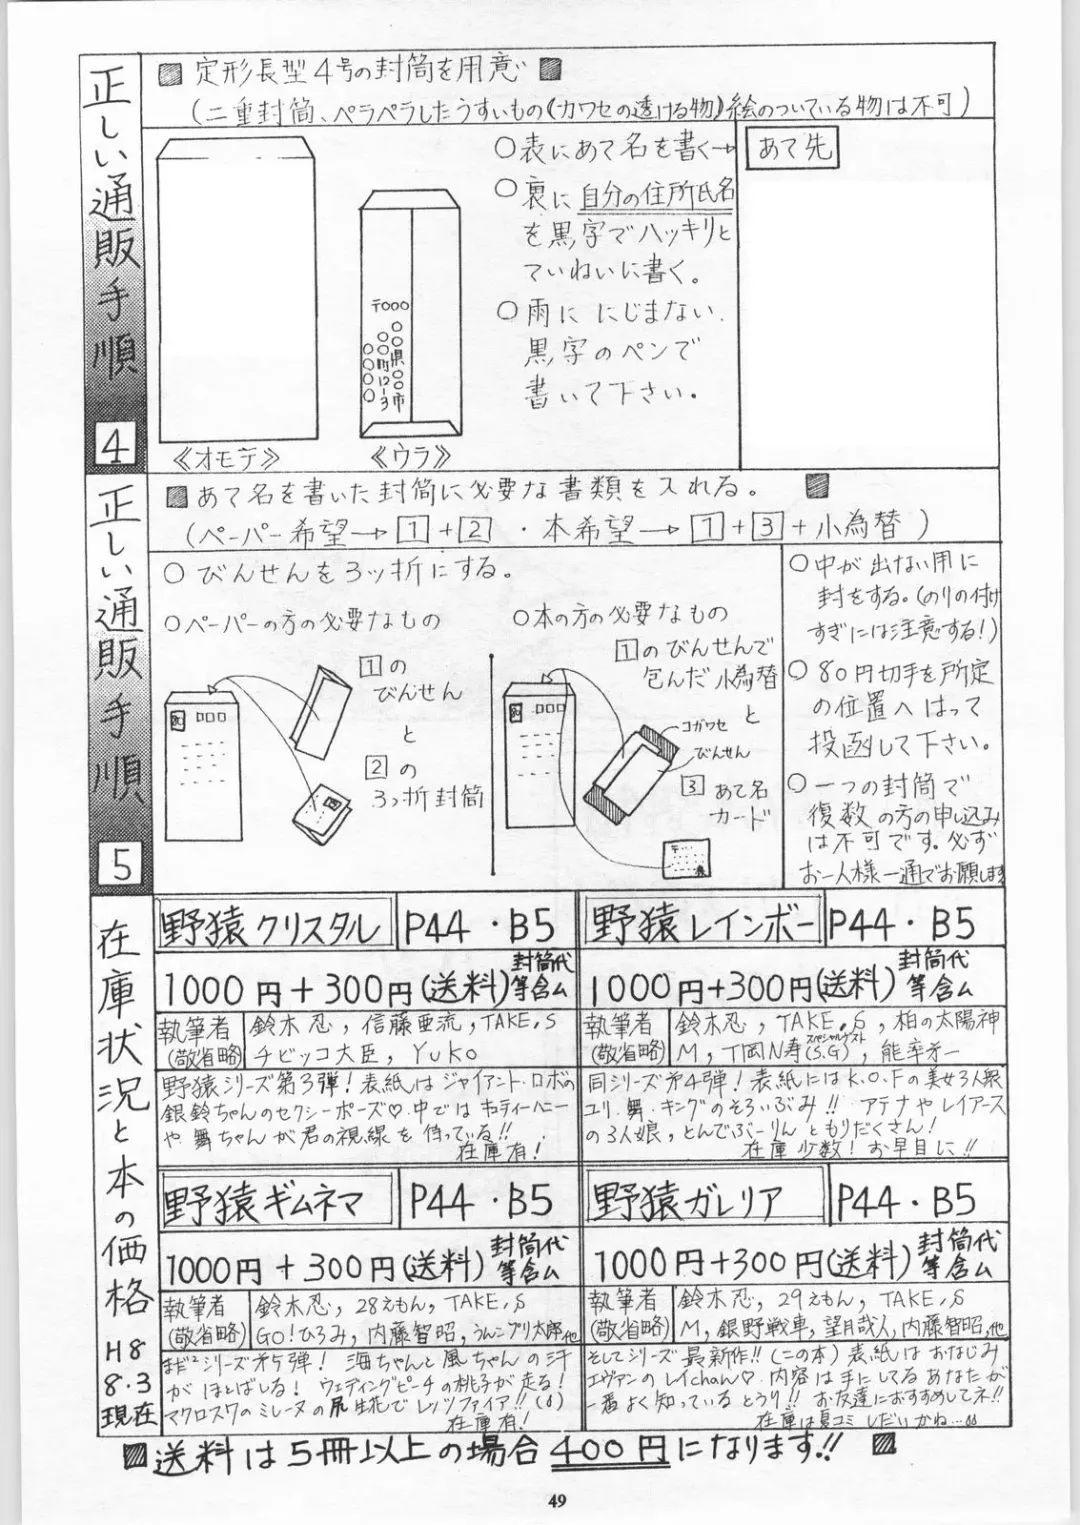 正しい通販手順 4
定形長型4号の封筒を用意
(二重封筒、ペラペラしたうすいもの(カワセの透ける物)絵のついている物は不可)
〒000
○○県○○市
○○町12-3
○○○○
《オモテ》
《ウラ》
○表にあて名を書く→
○裏に自分の住所氏名
を黒字でハッキリと
ていねいに書く。
○雨ににじまない
黒字のペンで
書いて下さい。
あて先
正しい通販手順 5
あて名を書いた封筒に必要な書類を入れる。
(ペーパー希望→1+2・本希望→1+3+小為替)
○びんせんを3ッ折にする。
○ペーパーの方の必要なもの
1の
びんせん
と
2の
3ッ折封筒
○本の方の必要なもの
1のびんせんで
包んだ小為替
と
コガワセ
びんせん
3あて名
カード
○中が出ない用に
封をする。(のりの付け
すぎには注意する!)
○80円切手を所定
の位置へはって
投函して下さい。
○一つの封筒で
復数の方の申し込み
は不可です。必ず
お一人様一通でお願します
在庫状況と本の価格
H8
8.3
現在
野猿クリスタル
P44・B5
1000円+300円(送料)封筒代等含ム
執筆者
(敬省略)
鈴木忍,信藤亜流,TAKE.S
チビッコ大臣,Yuko
野猿シリーズ第3弾!表紙はジャイアント・ロボの
銀鈴ちゃんのセクシーポーズ♡中ではキューティーハニー
や舞ちゃんが君の視線を待っている!!
在庫有!
野猿レインボー
P44・B5
1000円+300円(送料)封筒代等含ム
執筆者
(敬省略)
鈴木忍,TAKE.S,柏の太陽神
M,T岡N寿(S.G)スペシャルゲスト,能率才一
同シリーズ才4弾!表紙にはK.O.Fの美女3人衆
ユリ・舞・キングのそろいぶみ!!アテナやレイアース
の3人娘,とんでぶーりんともりだくさん!
在庫少数!お早目に!!
野猿ギムネマ
P44・B5
1000円+300円(送料)封筒代等含ム
執筆者
(敬省略)
鈴木忍,28えもん,TAKE.S
GO!ひろみ,内藤智昭,うんこブリ太郎,他
まだ²シリーズ才5弾!海ちゃんと風ちゃんの汗
がほとばしる!ウェディングピーチの桃子が走る!
マクロス7のミレーヌの尻生花でレッツファイア!!(δ)
在庫有!
野猿ガレリア
P44・B5
1000円+300円(送料)封筒代等含ム
執筆者
(敬省略)
鈴木忍,29えもん,TAKE.S
M,銀野戦車,望月哉人,内藤智昭,他
そしてシリーズ最新作!!(この本)表紙はおなじみ
エヴァンのレイchan♡内容は手にしてるあなたが
一番よく知っているとうり!!お友達におすすめしてネ!!
在庫は夏コミしだいかね…
送料は5冊以上の場合400円になります!!
49